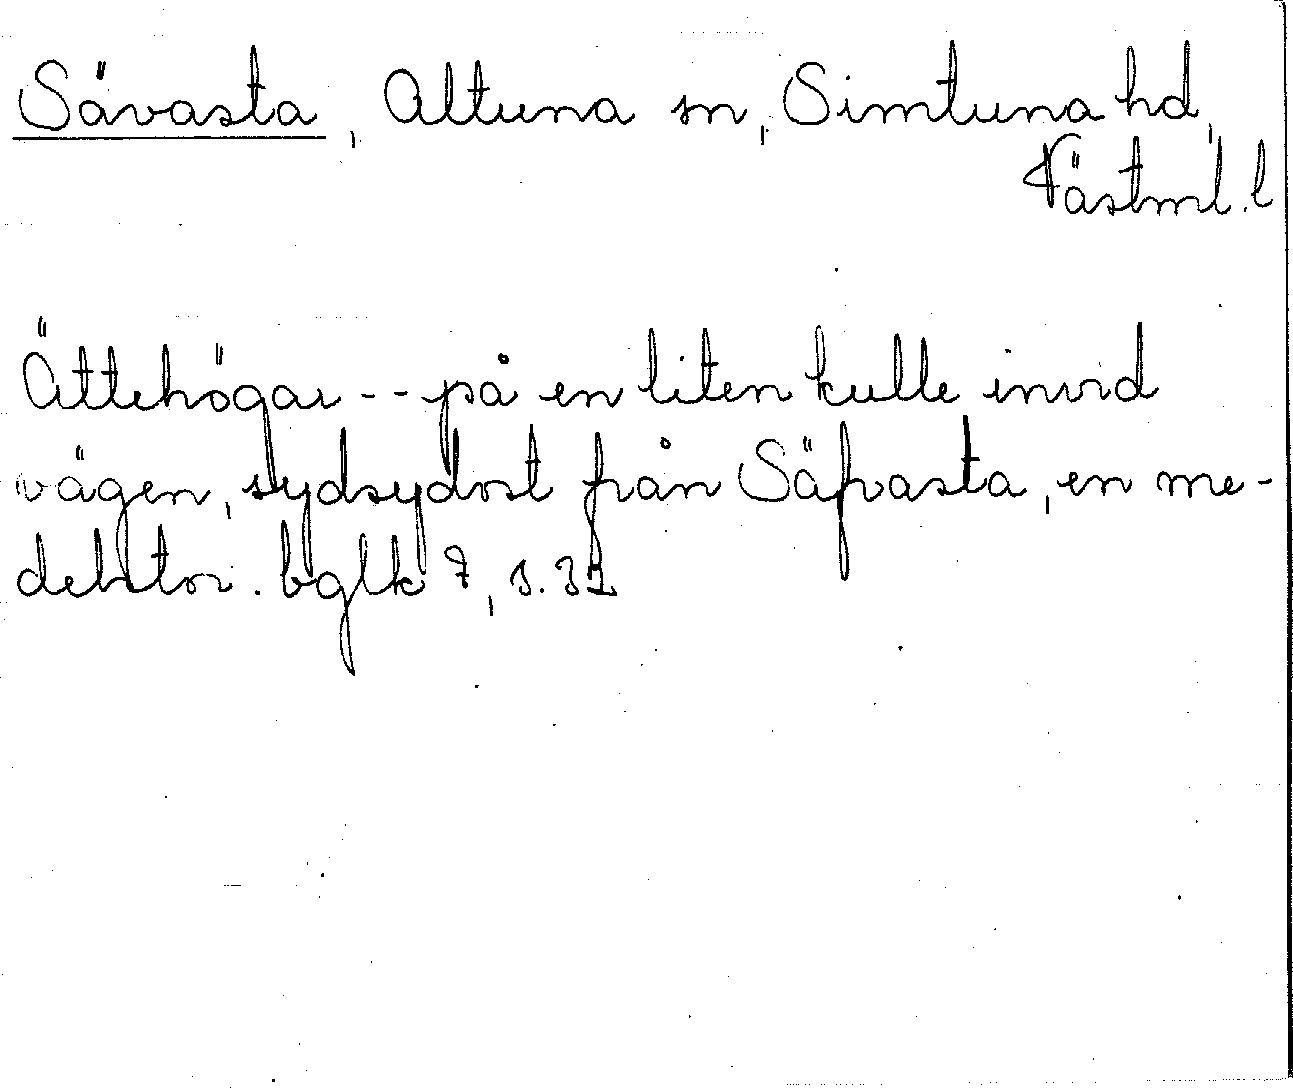 Sävasta, Altuna sn, Simtuna hd,
Västml. l
Ättehögar -- på en liten kulle invid
vägen, sydsydost från Säfvasta, en me-
deltor. bglk 7, s. 32